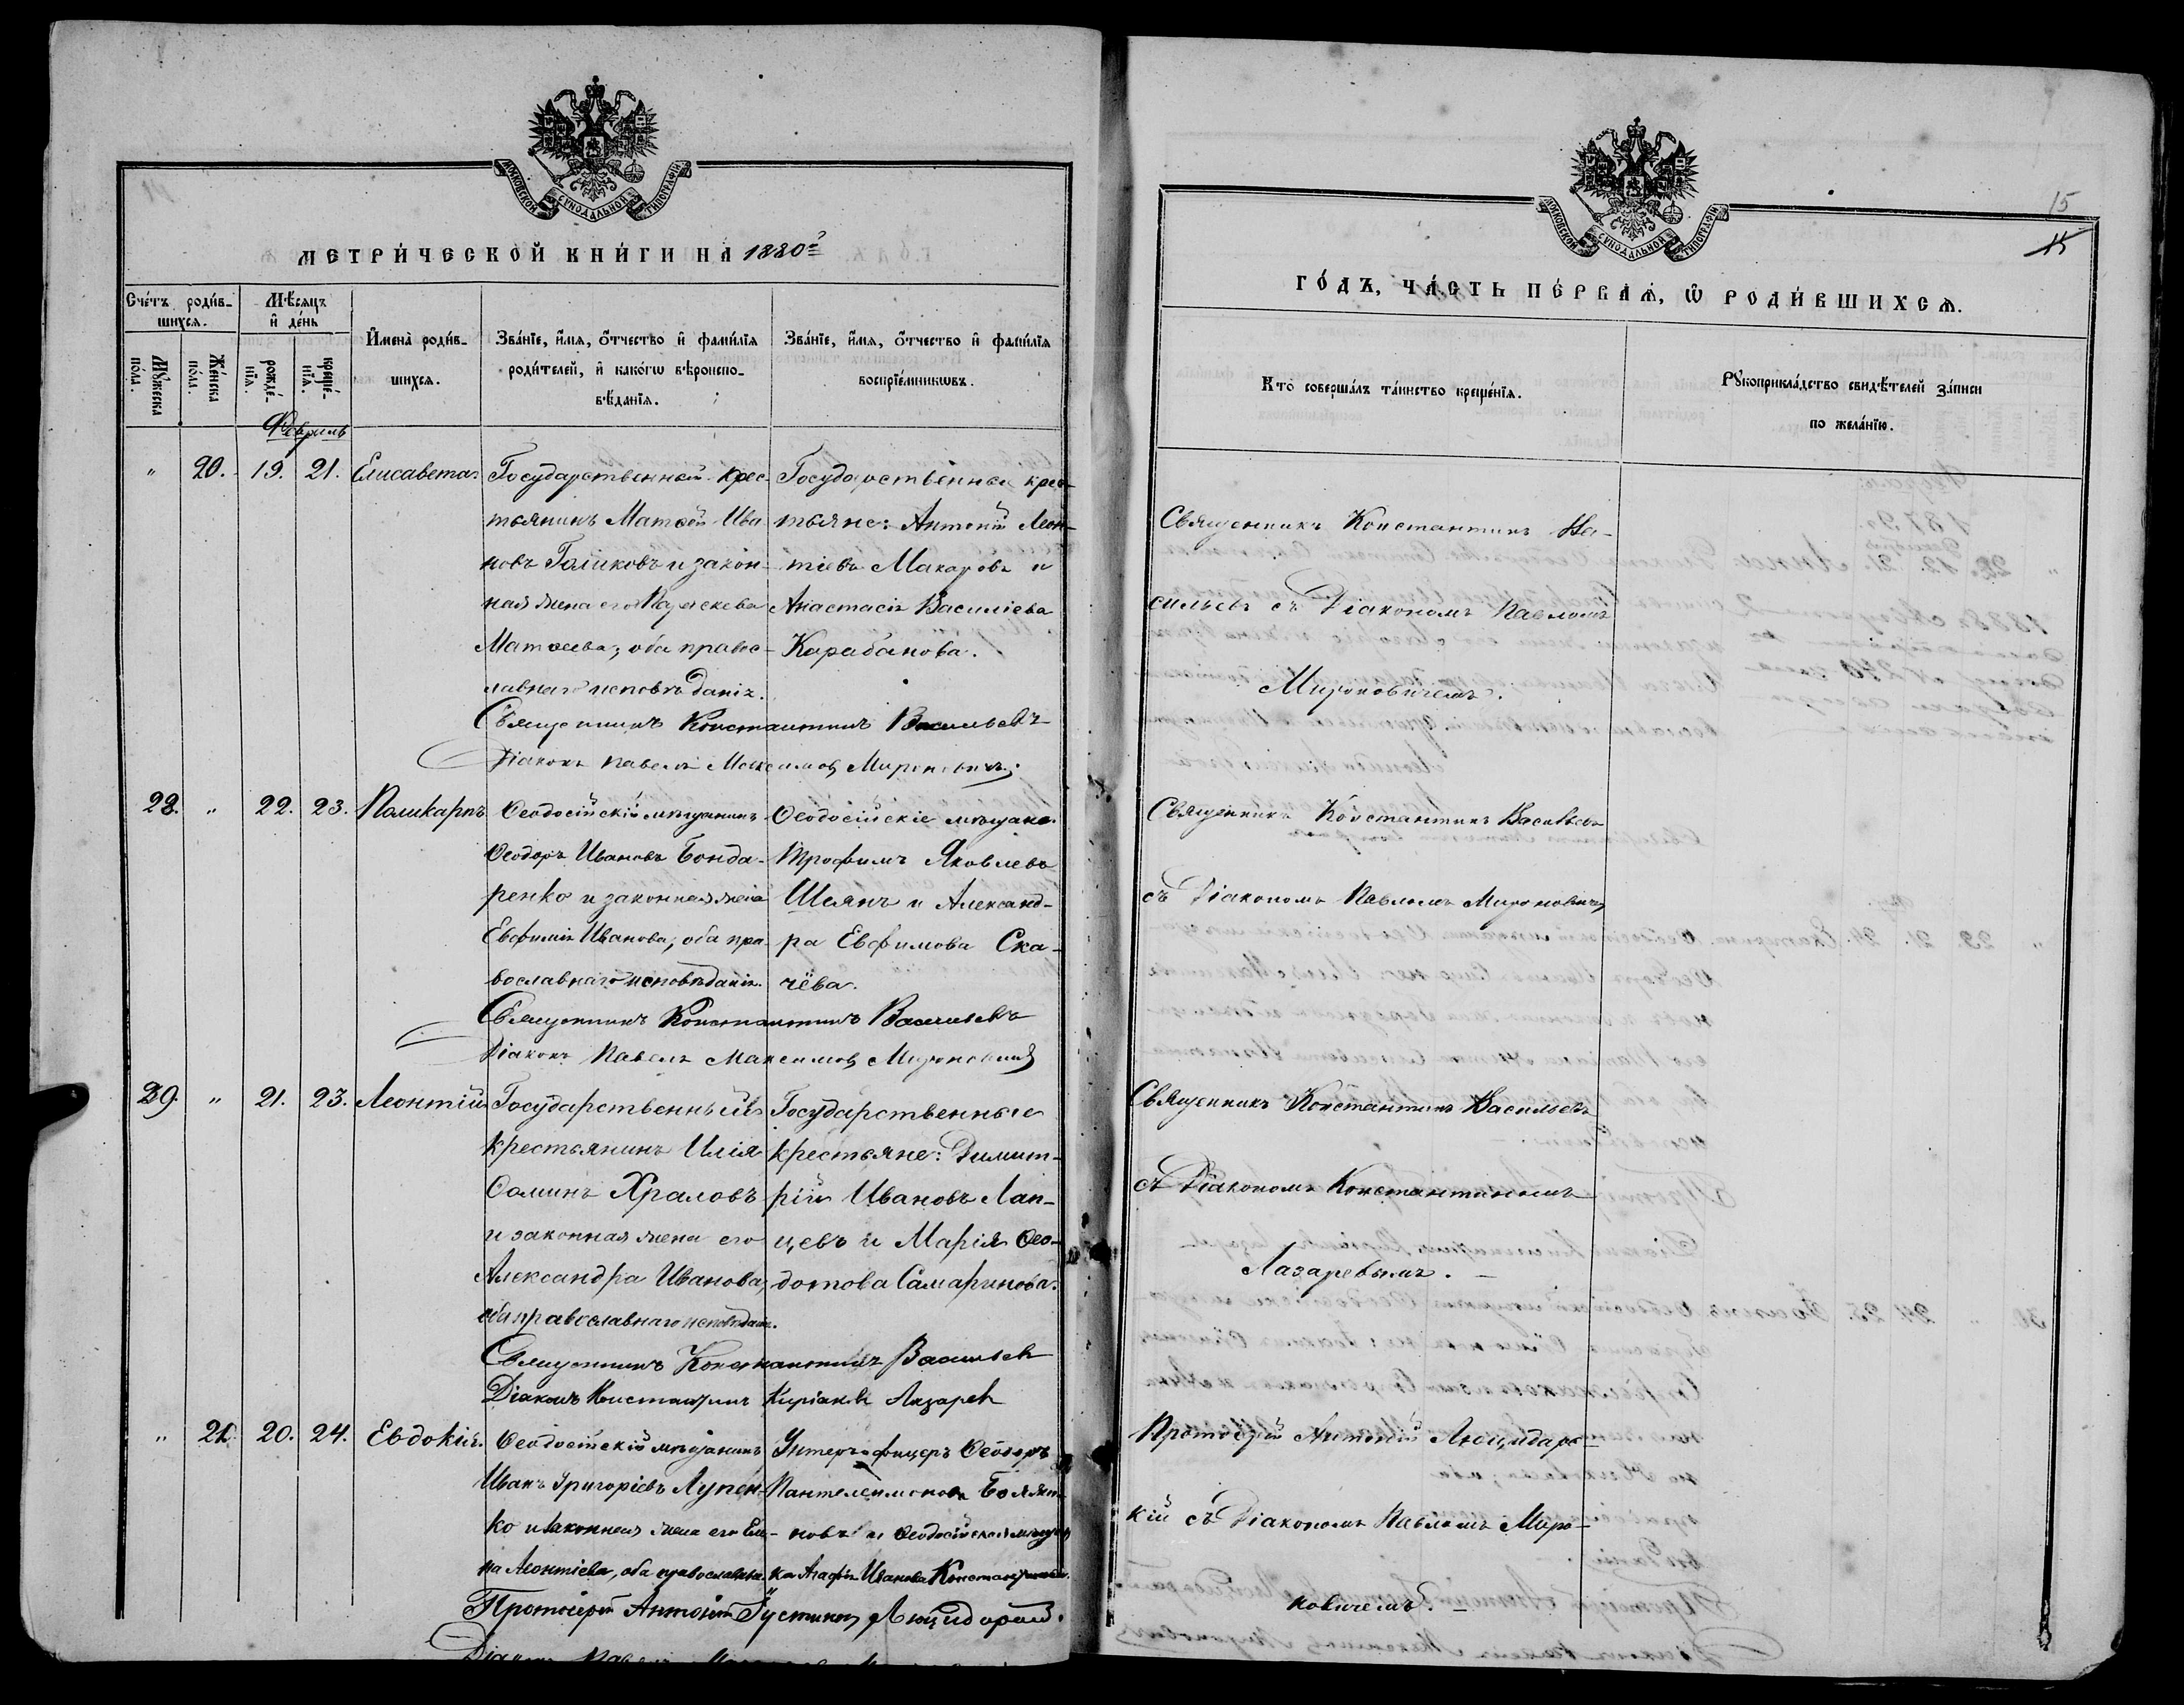 МОСКОВСКОЙ СУНОДАЛЬНОЙ ТИПОГРАФІИ
МЕТРИ́ЧЕСКОЙ КНИ́ГИ НА 1880г
Сче́тъ роди́в-
шихся.
Мѣ́сяцъ
и҆ де́нь
Мꙋ́жеска
по́ла.
Же́нска
по́ла.
рожде́-
нїя.
креще́-
нїя.
И҆мена̀ роди́в-
шихся.
Зва́нїе, и҆́мя, ѻ҆́тчество и҆ фами́лїя
роди́телей, и҆ како́гѡ вѣроиспо-
вѣ́данїя.
Зва́нїе, и҆́мя, ѻ҆́тчество и҆ фами́лїя
воспрїе́мникѡвъ.
Февраль
" 20. 19. 21. Елисавета.
Государственный крес-
тьянинъ Матѳей Ива-
новъ Голиковъ и закон-
ная жена его Параскева
Матѳеева; оба правос-
лавнаго исповѣданія.
Государственные крес-
тьяне: Антоній Леон-
тіевъ Макаровъ и
Анастасія Василіева
Карабанова.
Священникъ Константинъ Васильевъ
Діаконъ Павелъ Максимовъ Мироновичъ.
28. " 22. 23. Поликарпъ
Ѳеодосійскій мѣщанинъ
Ѳеодоръ Ивановъ Бонда-
ренко и законная жена
Евфимія Иванова; оба пра-
вославнаго исповѣданія.
Ѳеодосійскіе мѣщане
Трофимъ Яковлевъ
Шелянъ и Александ-
ра Евфимова Ска-
чёва.
Священникъ Константинъ Васильевъ
Діаконъ Павелъ Максимовъ Мироновичъ
29. " 21. 23. Леонтій
Государственный
крестьянинъ Илія
Ѳоминъ Храмовъ
и законная жена его
Александра Иванова,
оба православнаго исповѣданія.
Государственные
крестьяне: Димит-
рій Ивановъ Лап-
цевъ и Марія Ѳео-
дотова Самаринова.
Священникъ Константинъ Васильевъ
Діаконъ Константинъ Киріаковъ Лазаревъ
" 21. 20. 24. Евдокія.
Ѳеодосійскій мѣщанинъ
Иванъ Григоріевъ Лупен-
ко и законная жена его Еле-
на Леонтіева, оба православна.
Унтеръ-офицеръ Ѳеодоръ
Пантелеимоновъ Боллян-
новъ и Ѳеодосійская мѣщан
ка Агафія Иванова Константинова.
Протоіерей Антоній Іустиновъ Люцидарскій.
Діаконъ Павелъ
15
МОСКОВСКОЙ СУНОДАЛЬНОЙ ТИПОГРАФІИ
ГО́ДЪ, ЧА́СТЬ ПЕ́РВАЯ, Ѡ҆ РОДИ́ВШИХСЯ.
Кто̀ соверша́лъ та́инство креще́нїя.
Рꙋкоприкла́дство свидѣ́телей за́писи
по жела́нїю.
Священникъ Константинъ Ва-
сильевъ съ Діакономъ Павломъ
Мироновичемъ.
Священникъ Константинъ Васильевъ
съ Діакономъ Павломъ Мироновичемъ
Священникъ Константинъ Васильевъ
съ Діакономъ Константиномъ
Лазаревымъ.
Протоіерей Антоній Люцидарс-
кій съ Діакономъ Павломъ Миро-
новичемъ.